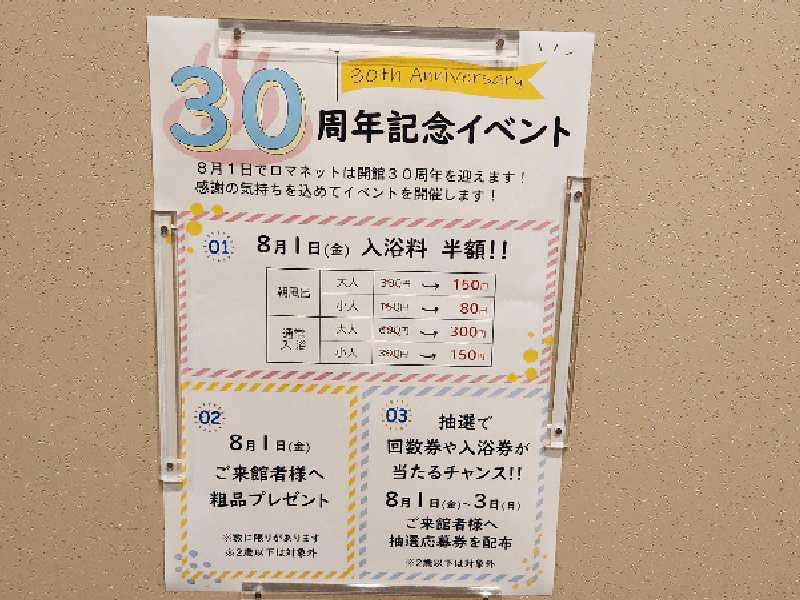 30th Anniversary
30周年記念イベント
8月1日でロマネットは開館30周年を迎えます！
感謝の気持ちを込めてイベントを開催します！
01 8月1日(金) 入浴料 半額!!
朝風呂 大人 → 150円
小人 → 80円
通常入浴 大人 → 300円
小人 → 150円
02
8月1日(金)
ご来館者様へ
粗品プレゼント
※数に限りがあります
※2歳以下は対象外
03 抽選で
回数券や入浴券が
当たるチャンス!!
8月1日(金)~3日(日)
ご来館者様へ
抽選応募券を配布
※2歳以下は対象外